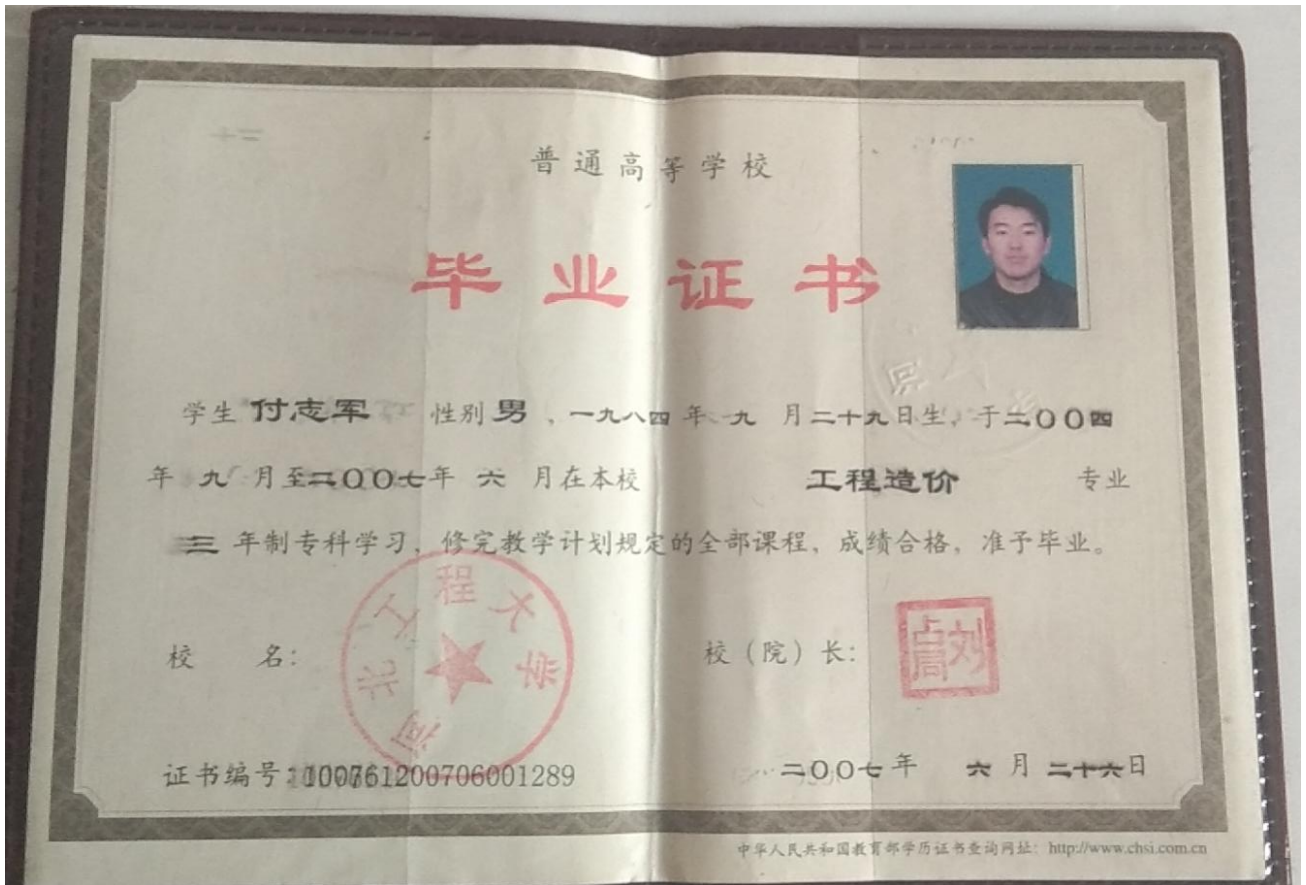 普通高等学校
毕业证书
学生 付志军 性别 男 、一九八四 年 九 月 二十九日生, 于二〇〇四
年 九 月至二〇〇七年 六 月在本校 工程造价 专业
三 年制专科学习, 修完教学计划规定的全部课程, 成绩合格, 准予毕业。
河北工程大学
校 名: 校(院)长:
证书编号:100761200706001289 二〇〇七 年 六 月 二十六日
中华人民共和国教育部学历证书查询网址: http://www.chsi.com.cn